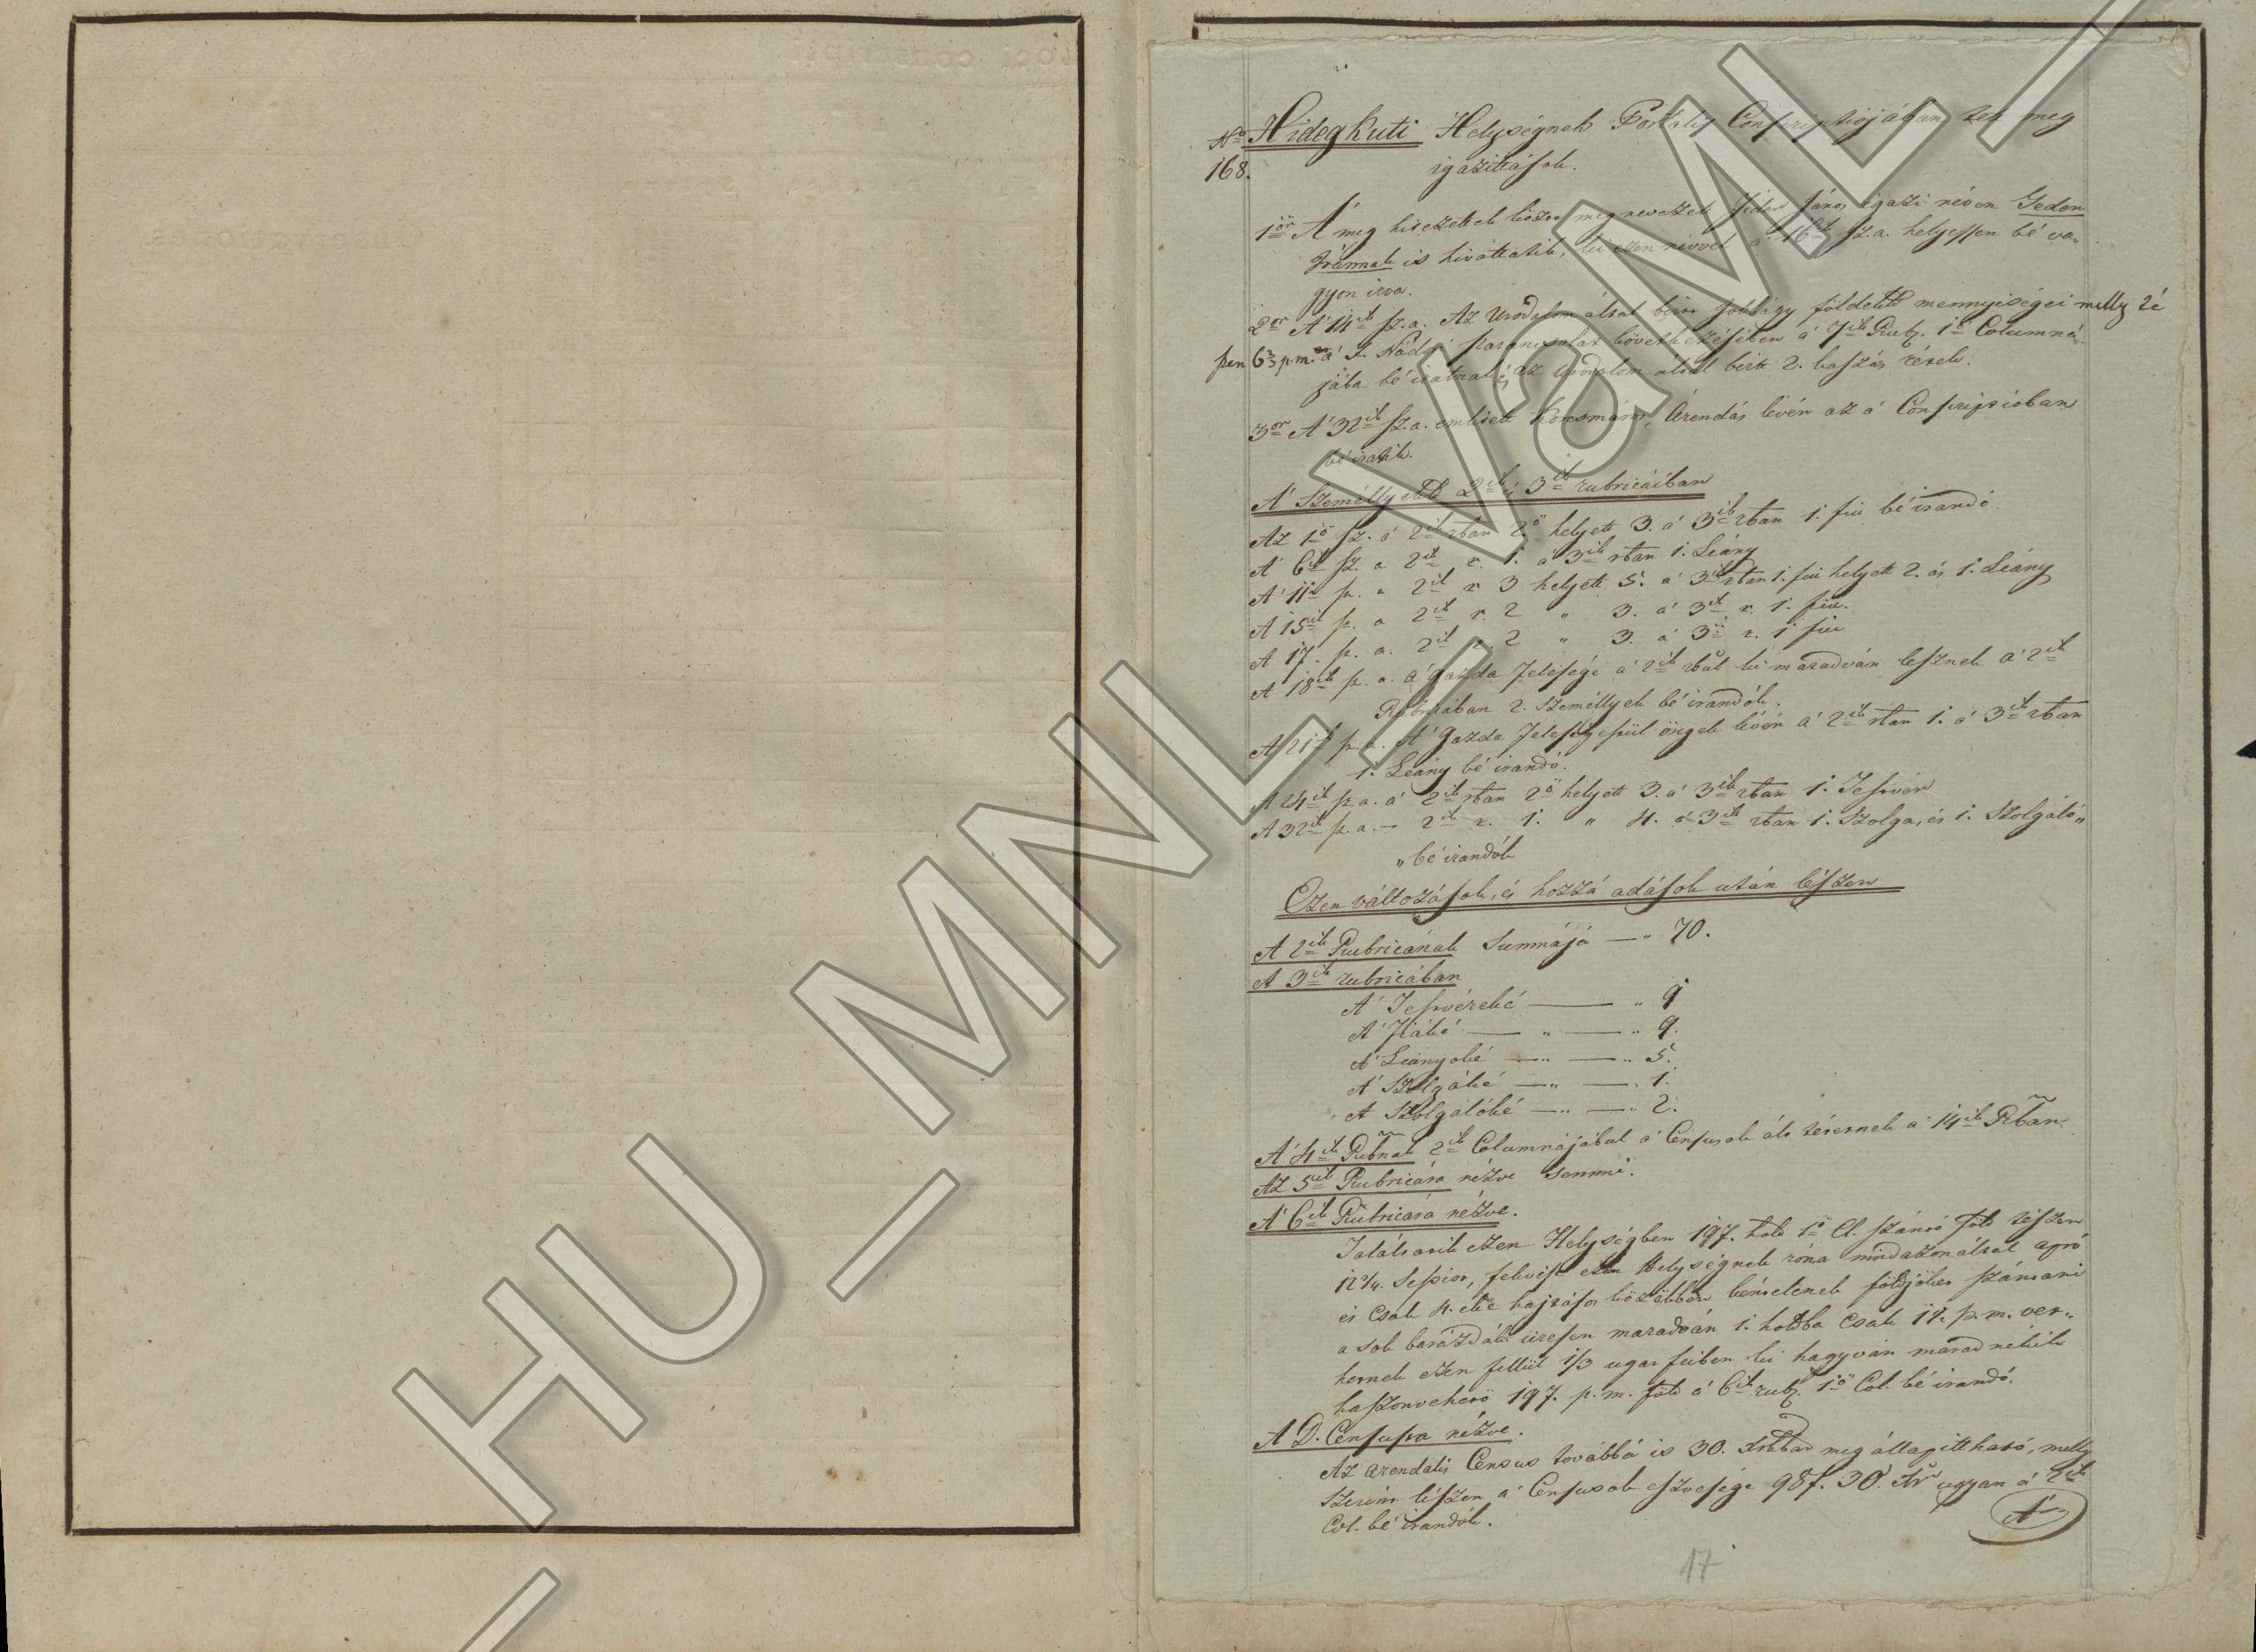 Nro Hidegkuti Helységnek Portalis Conscriptiójában tett meg
168. igazitások.
1ör A' meg hiteztettek közzé meg nevezett János igazi néven Gedon
Jánosnak is hivattatik, ki ezen névvel a' 16ik sz. a. helyessen bé va„
gyon irva.
2or A' 14ik sz. a. Az Uradalom által birt jobbágy földek mennyiségei melly té
szen 6 2/3 p. m. a' F. Nádori parancsolat következésében a' 7ik Rub. 1ő Columná
jába bé iratnak és az Uradalom által birt 2. kaszás rétek.
3or A' 32ik sz. a. emlitett Korcsmáros, Árendás lévén az a' Conscriptioban
bé iratik.
A' Személlyek 2ik és 3ik rubricáiban
Az 1ő sz. a' 2ik rban 2ő helyett 3. a' 3ik rban 1. fiu bé irandó
A' 6ik sz. a 2ik r. 1. a' 3ik rban 1. Leány
A' 11ik sz. a 2ik r 3 helyett 5. a' 3ik rban 1. fiu helyett 2. és 1. Leány
A 15ik sz. a 2ik r. 2 „ 3. a' 3ik r. 1. fiu.
A 17. sz. a. 2ik r. 2 „ 3. a' 3ik r. 1 fiu
A 18ik sz. a. a' Gazda felesége a' 2ik rbul ki maradván lesznek a' 2ik
Rubricában 2. Személlyek bé irandók.
A 21ik sz. a. A' Gazda feleségestül öregek lévén a' 2ik rban 1. a' 3ik rban
1. Leány bé irandó.
A 24ik sz. a. a' 2ik rban 2ő helyett 3. a' 3ik rban 1. Testvér
A 32ik sz. a. — 2ik r. 1. „ 4. a' 3ik rban 1. Szolga, és 1. Szolgáló„
„bé irandók
Ezen változások, és hozzá adások után lészen
A 2ik Rubricának Summája — „ 70.
A 3ik rubricában
A' Testvéreké — „ 9
A' Fiaké — „ — „ 9.
A' Leányoké — „ — „ 5.
A' Szolgáké — „ — „ 1.
A Szolgálóké — „ — „ 2.
A' 4ik Rubnak 2ik Columnájábul a' Censusok ált tétetnek a' 14ik Rban.
Az 5ik Rubricára nézve semmi.
A' 6ik Rubricára nézve.
Találtatik ezen Helységben 197. hold 1ő Cl. szántó föld tészen
12 2/4. Sessiot, fekvése ezen Helységnek róna mindazonáltal apró
és csak 4. ekre hajtásos közöttök lévén földjöket szántani
a sok barázdák üressen maradván 1. holdba csak 1 1/2. p. m. vet„
hetnek ezen fellül 1/3 ugar feiben ki hagyván marad nékik
haszonvehető 197. p. m. föld a' 6ik rub. 1ő Col. bé irandó.
A D. Censusra nézve.
Az arendalis Census továbbá is 30. xrban meg állapittható, melly
szerint lészen a' Censusok eszvesége 98f. 30. xr ugyan a' 2ik
Col. bé irandók.
17
HU_MNL_VaML_I